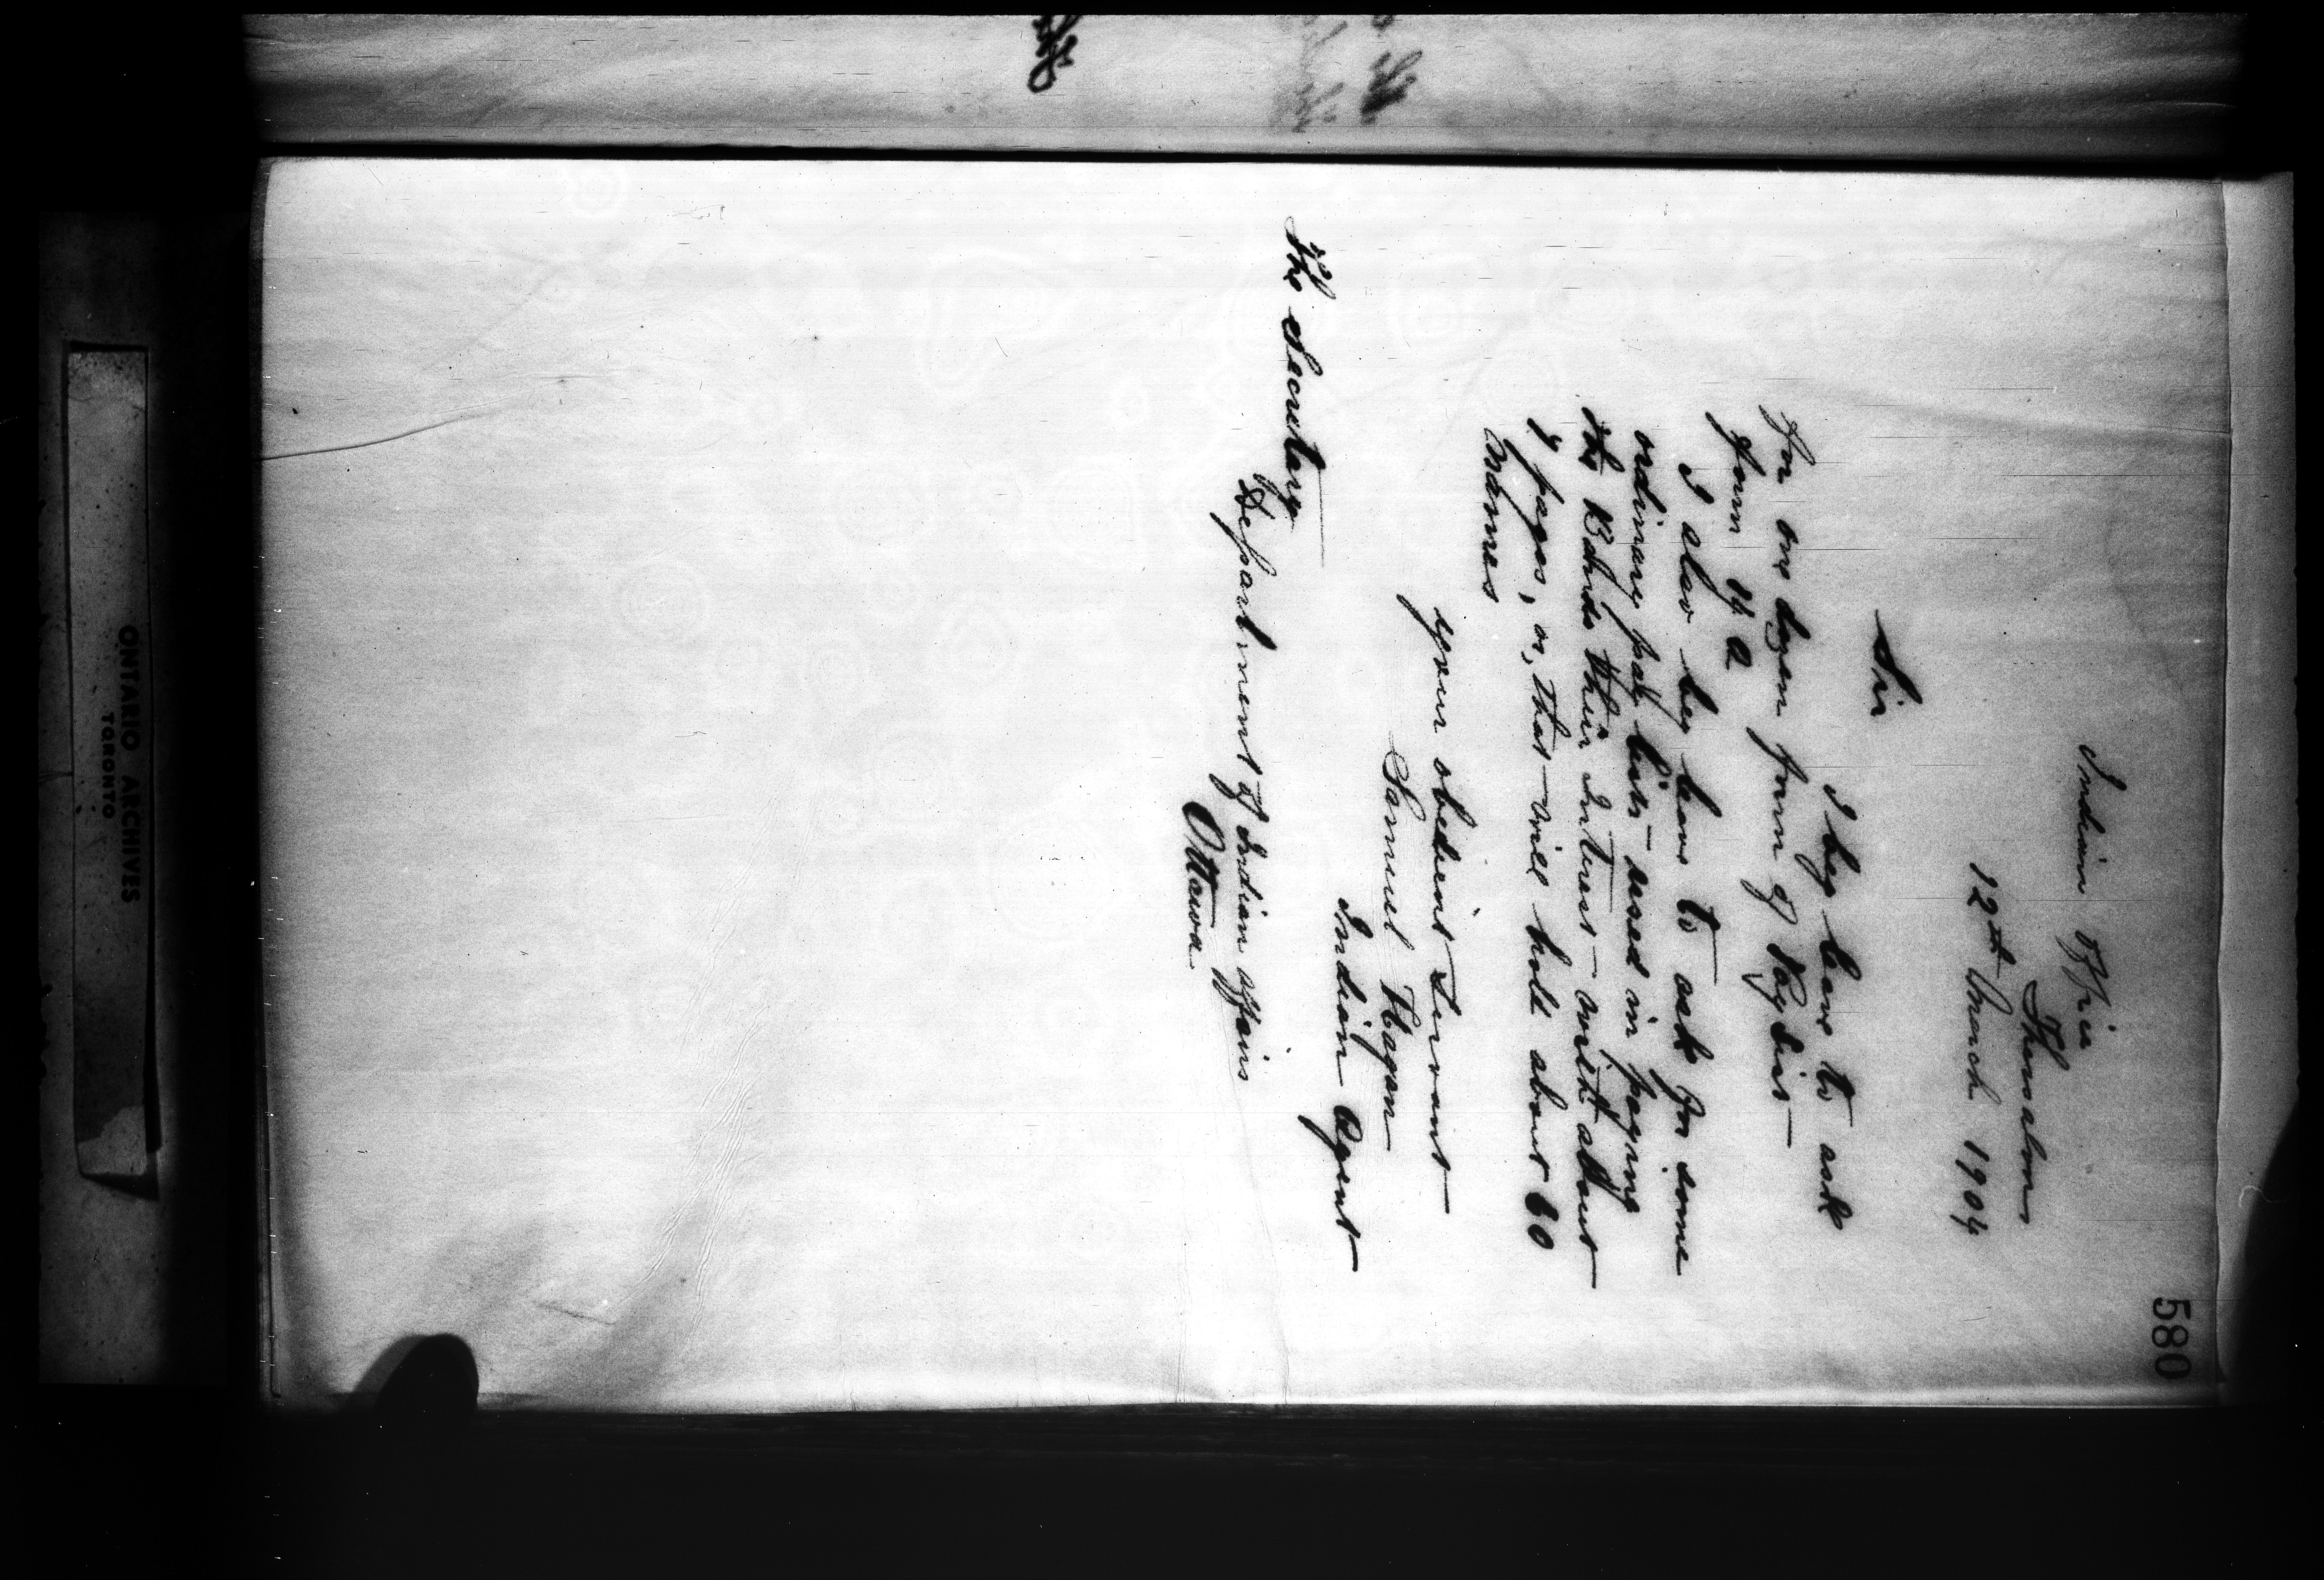 580
Indian Office
Thessalon
12th March 1904
Sir
I beg leave to ask
for one dozen form of Pay List
form 14 A
I also beg leave to ask for some
ordinary pay lists used in paying
the Bands their Interest with about
4 pages, or, that will hold about 60
names
your obedient Servant
Samuel Hagan
Indian Agent
The Secretary
Department of Indian Affairs
Ottawa
ONTARIO ARCHIVES
TORONTO